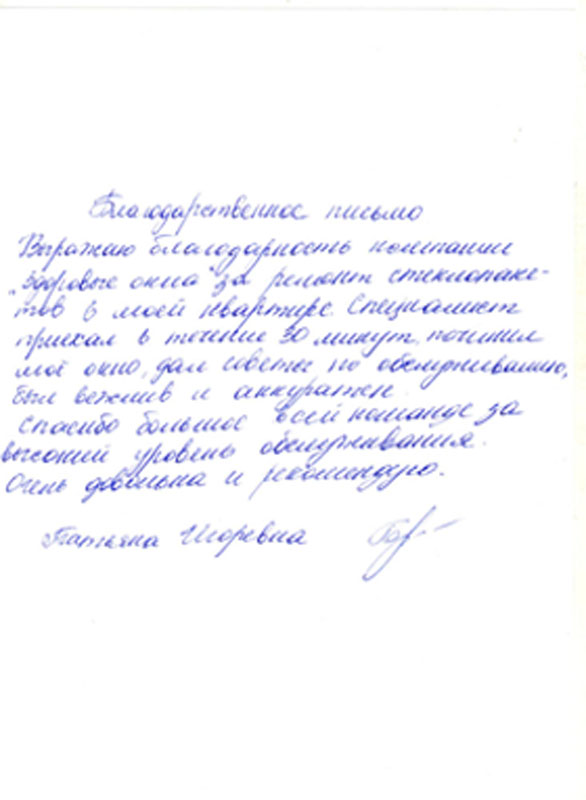 Благодарственное письмо
Выражаю благодарность компании
"Здоровые окна" за ремонт стеклопаке-
тов в моей квартире. Специалист
приехал в течение 30 минут, починил
моё окно, дал советы по обслуживанию,
был вежлив и аккуратен.
Спасибо большое всей команде за
высокий уровень обслуживания.
Очень довольна и рекомендую.
Татьяна Игоревна